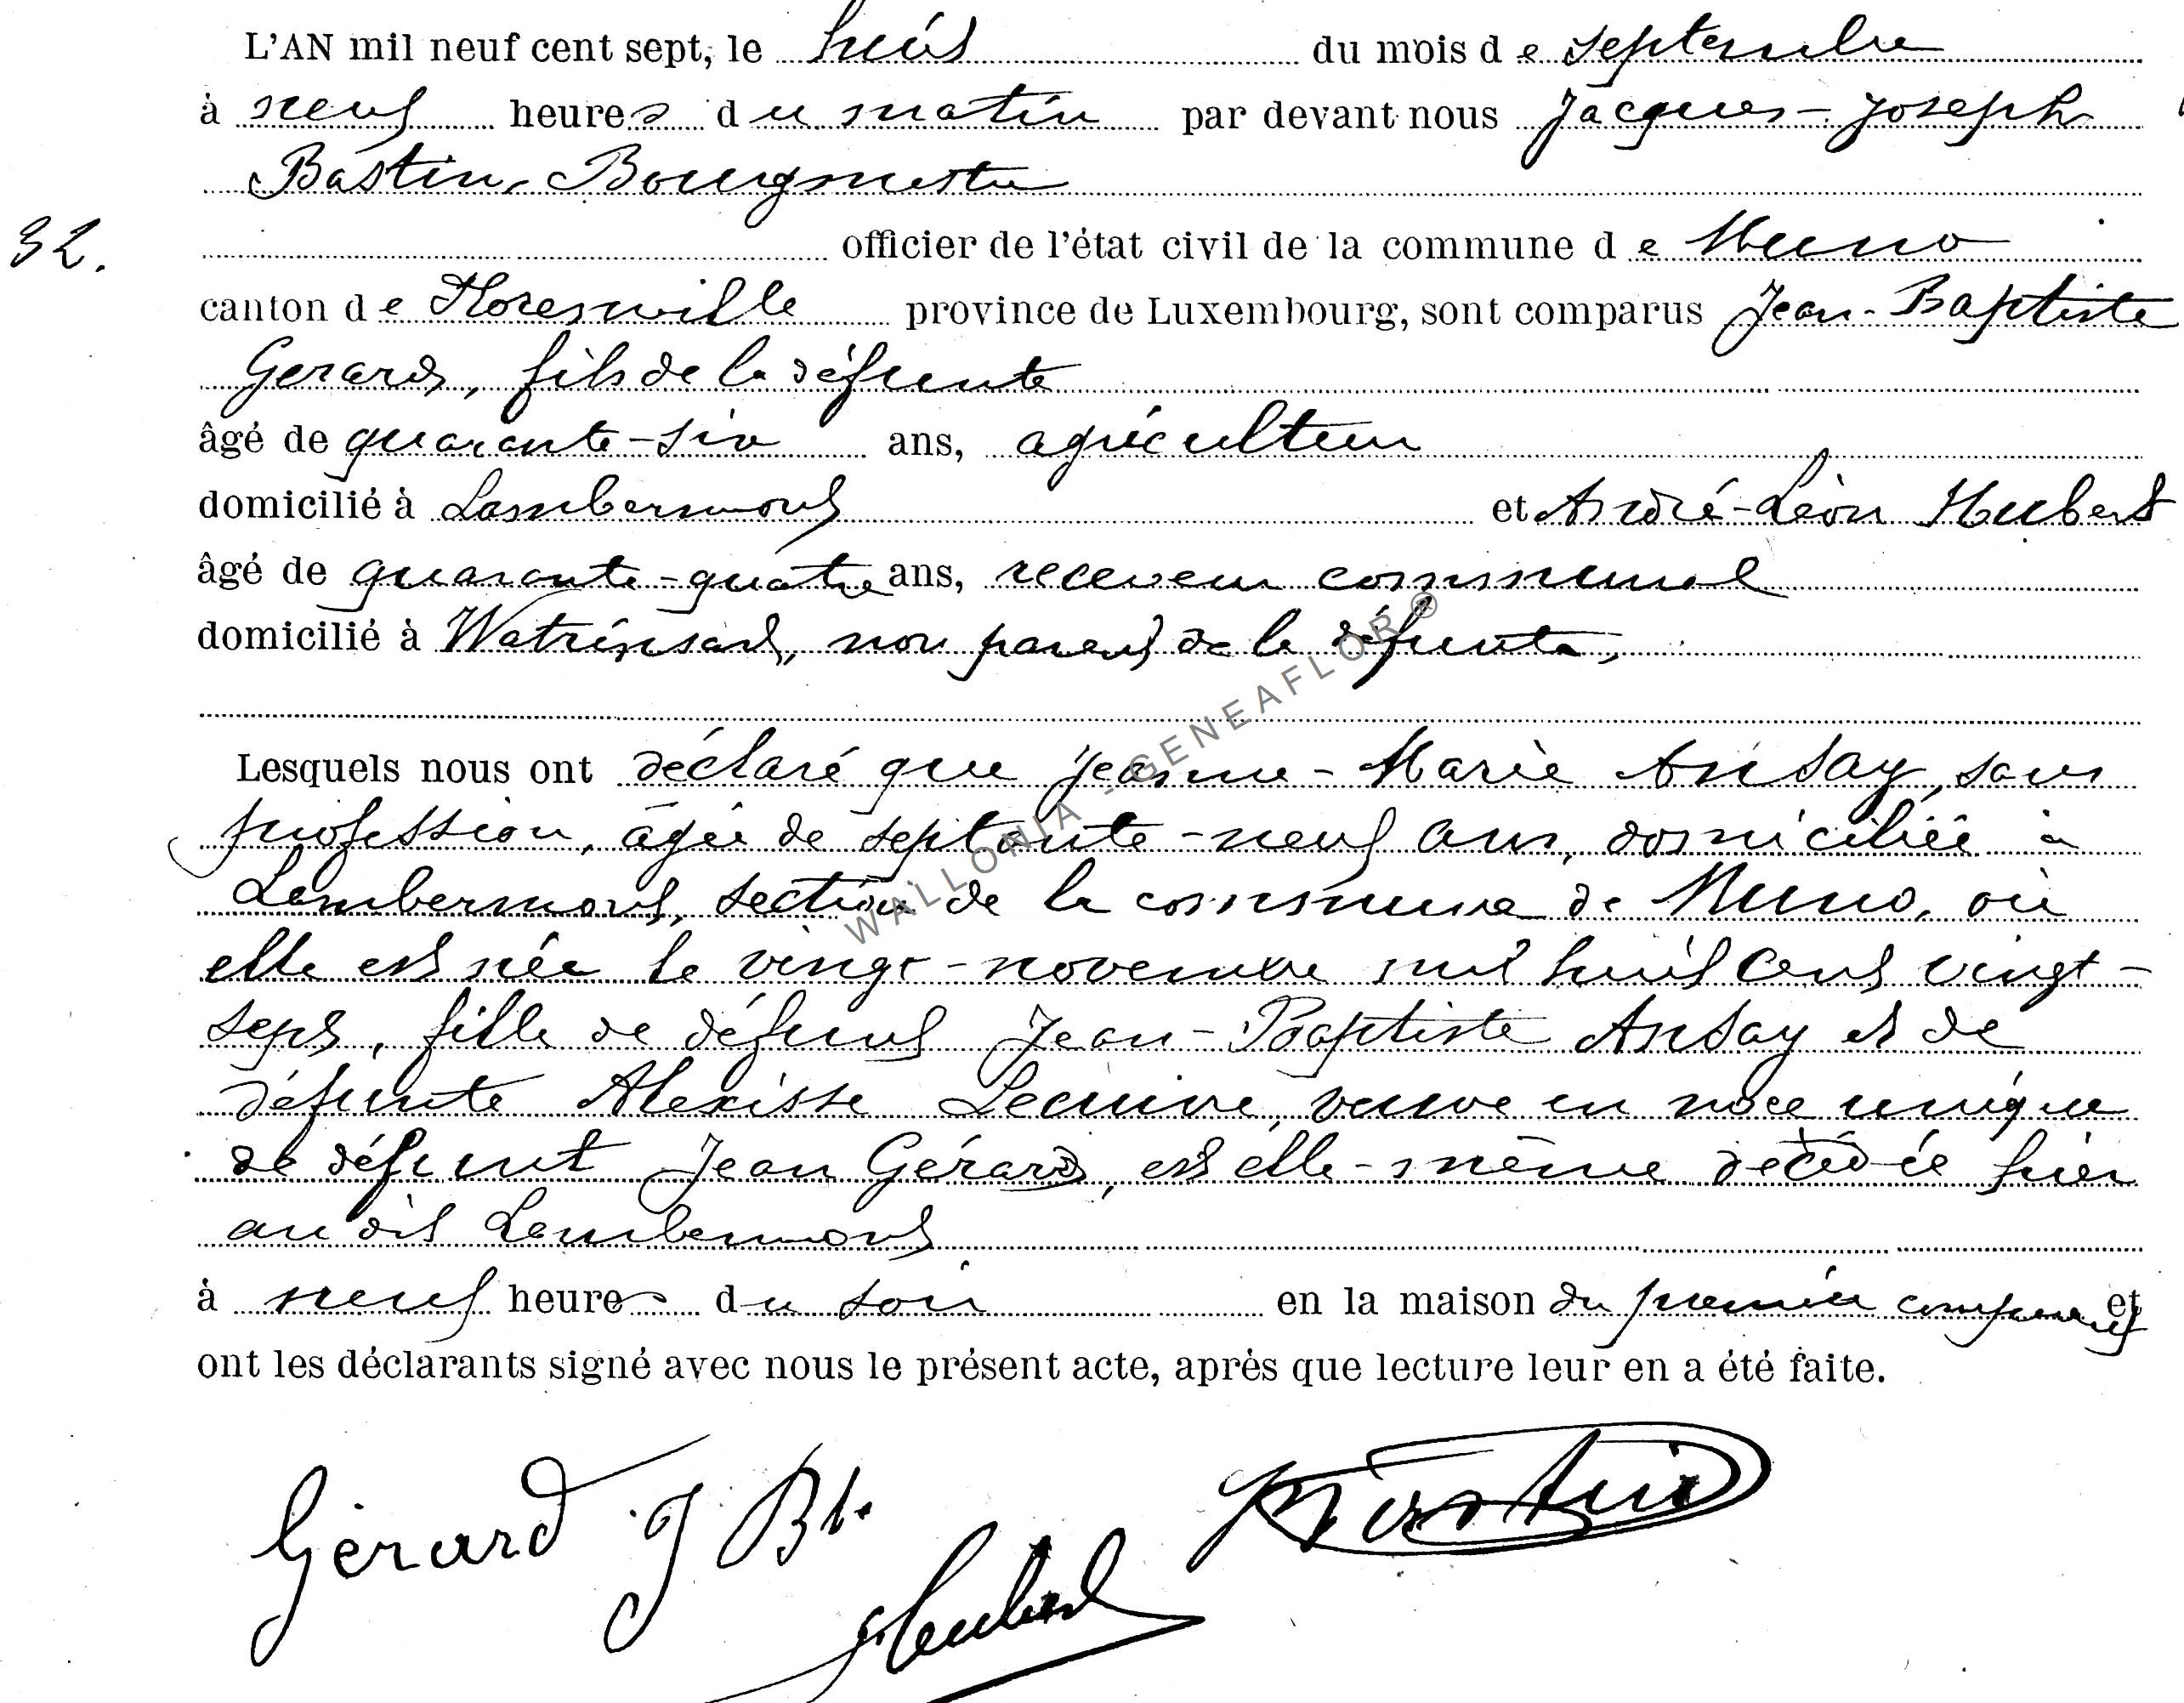 L'AN mil neuf cent sept, le huit du mois de septembre
à neuf heures du matin par devant nous Jacques-Joseph
Bastin, Bourgmestre
32.
officier de l'état civil de la commune de Muno
canton de Florenville province de Luxembourg, sont comparus Jean-Baptiste
Gerard, fils de la défunte
âgé de quarante-six ans, agriculteur
domicilié à Lambermont et André-Léon Hubert
âgé de quarante-quatre ans, receveur communal
domicilié à Watrinsart, non parent de la défunte,
Lesquels nous ont déclaré que Jeanne-Marie Ansay, sans
profession, âgée de septante-neuf ans, domiciliée à
Lambermont, section de la commune de Muno, où
elle est née le vingt-novembre mil huit cent vingt-
sept, fille de défunt Jean-Baptiste Ansay et de
défunte Alexisse Lecuivre, veuve en noce unique
de défunt Jean Gérard, est elle-même décédée hier
au dit Lambermont
à neuf heures du soir en la maison du premier comparant et
ont les déclarants signé avec nous le présent acte, après que lecture leur en a été faite.
Gérard J Bte
Hubert
Bastin
WALLONIA - GENEAFLOR ®